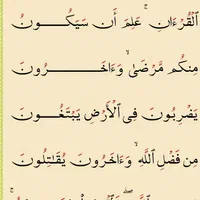 ٱلْقُرْءَانِ ۚ عَلِمَ أَن سَيَكُونُ
مِنكُم مَّرْضَىٰ ۙ وَءَاخَرُونَ
يَضْرِبُونَ فِى ٱلْأَرْضِ يَبْتَغُونَ
مِن فَضْلِ ٱللَّهِ ۙ وَءَاخَرُونَ يُقَـٰتِلُونَ